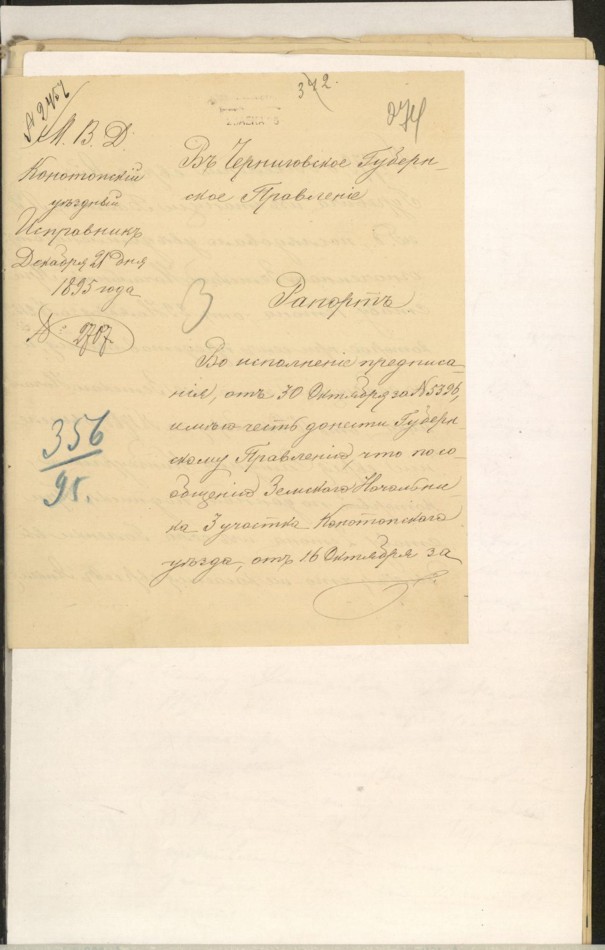 342.
274
М. В. Д.
Конотопскій
уѣздный
Исправникъ
Декабря 21 дня
1895 года
№ 2767.
356
95.
Въ Черниговское Губерн-
ское Правленіе
Рапортъ.
Во исполненіе предписа-
нія, отъ 30 Октября за № 5396,
имѣю честь донести Губерн-
скому Правленію, что по со-
общенію Земскаго Начальни-
ка 3 участка Конотопскаго
уѣзда, отъ 16 Октября за